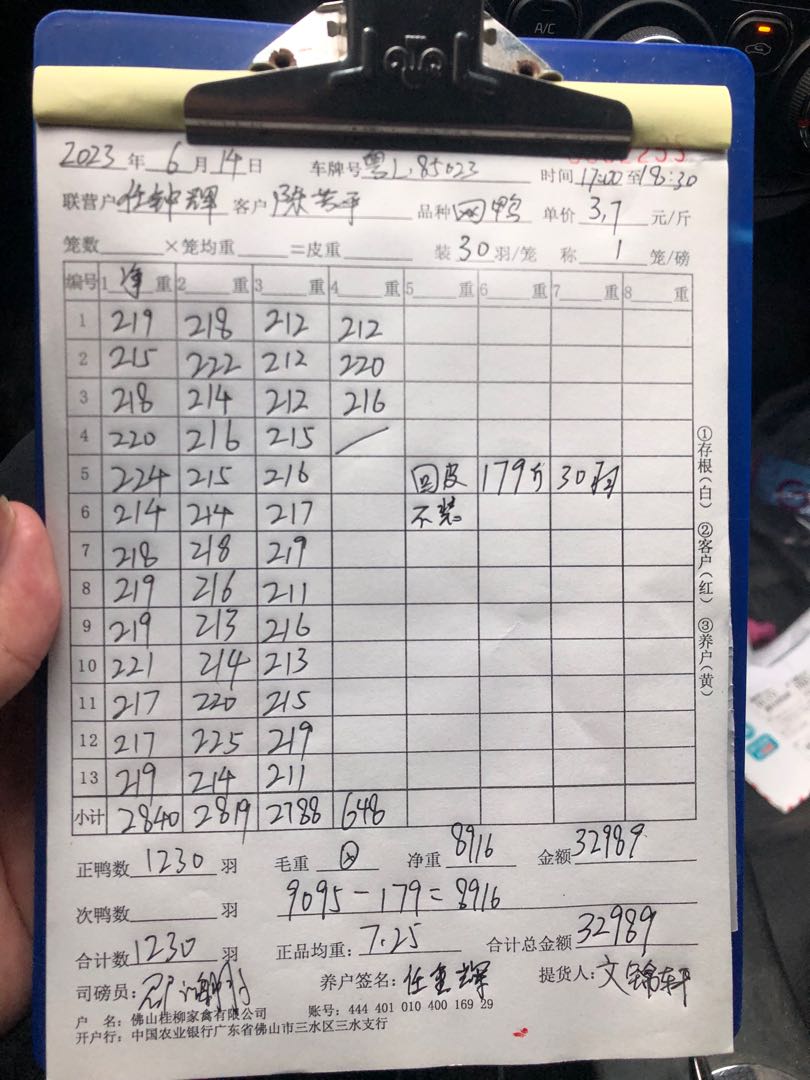 A/C
2023年6月14日 车牌号粤L·85023 时间17:00至18:30
联营户任钟辉 客户陈芳平 品种 鸭 单价3.7元/斤
笼数 ×笼均重 =皮重 装30羽/笼 称1笼/磅
编号 1净重 2 重 3 重 4 重 5 重 6 重 7 重 8 重
1 219 218 212 212
2 215 222 212 220
3 218 214 212 216
4 220 216 215 /
5 224 215 216 回皮 179斤 30羽
6 214 214 217 不装
7 218 218 219
8 219 216 211
9 219 213 216
10 221 214 213
11 217 220 215
12 217 225 219
13 219 214 211
小计 2840 2819 2788 648
正鸭数1230羽 毛重 净重8916 金额32989
次鸭数 羽 9095-179=8916
合计数1230羽 正品均重:7.25 合计总金额32989
司磅员: 养户签名:任重辉 提货人:文锦轩
户 名:佛山桂柳家禽有限公司 账号:444 401 010 400 169 29
开户行:中国农业银行广东省佛山市三水区三水支行
①存根(白) ②客户(红) ③养户(黄)